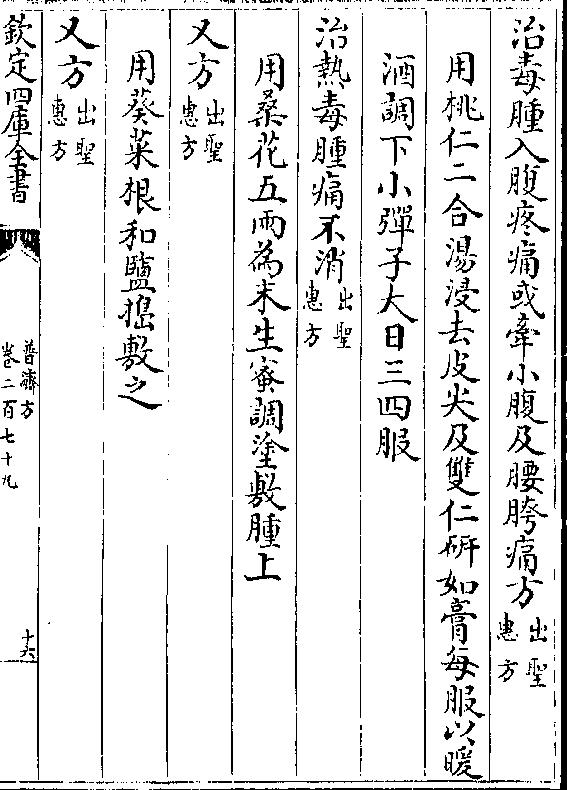 治毒腫入腹疼痛或牽小腹及腰胯痛方出聖惠方
用桃仁二合湯浸去皮尖及雙仁研如膏每服以暖
酒調下小彈子大日三四服
治熱毒腫痛不消出聖惠方
用桑花五兩為末生蜜調塗敷腫上
又方出聖惠方
用葵菜根和鹽搗敷之
又方出聖惠方
欽定四庫全書
普濟方
卷二百七十九
十六